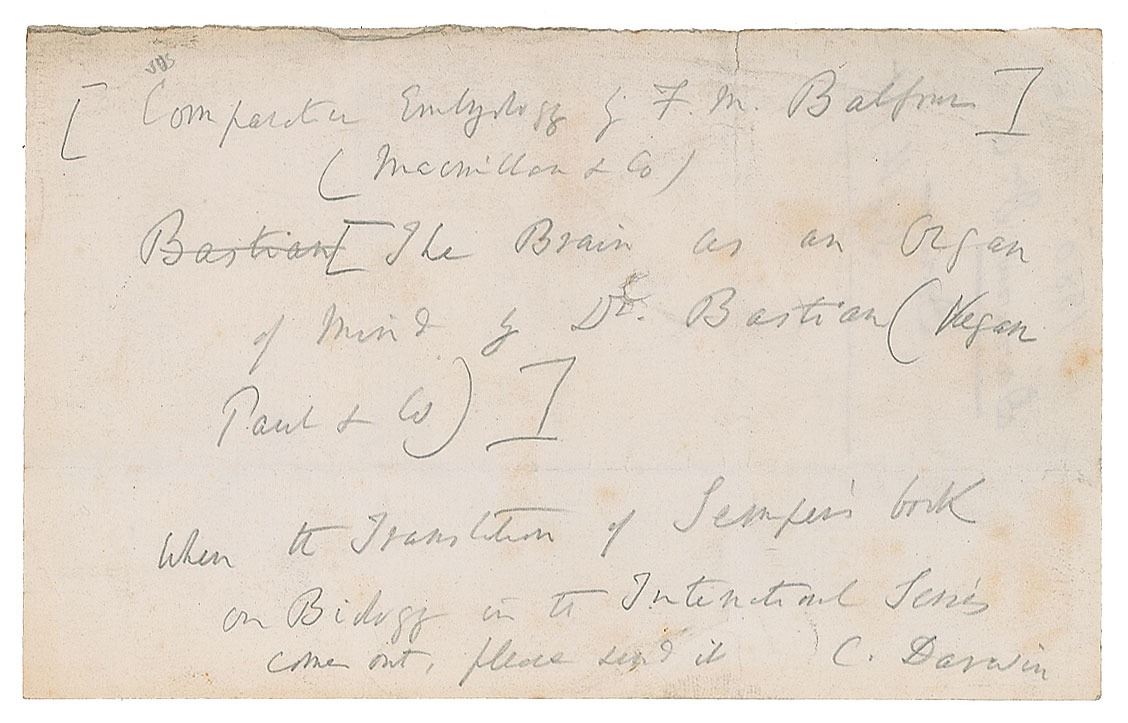 [ Comparative Embryology by F. M. Balfour ]
(Macmillan & Co)
Bastian [ The Brain as an Organ
of Mind by Dr. Bastian (Kegan
Paul & Co) ]
When the Translation of Semper's book
on Biology in the International Series
comes out, please send it C. Darwin